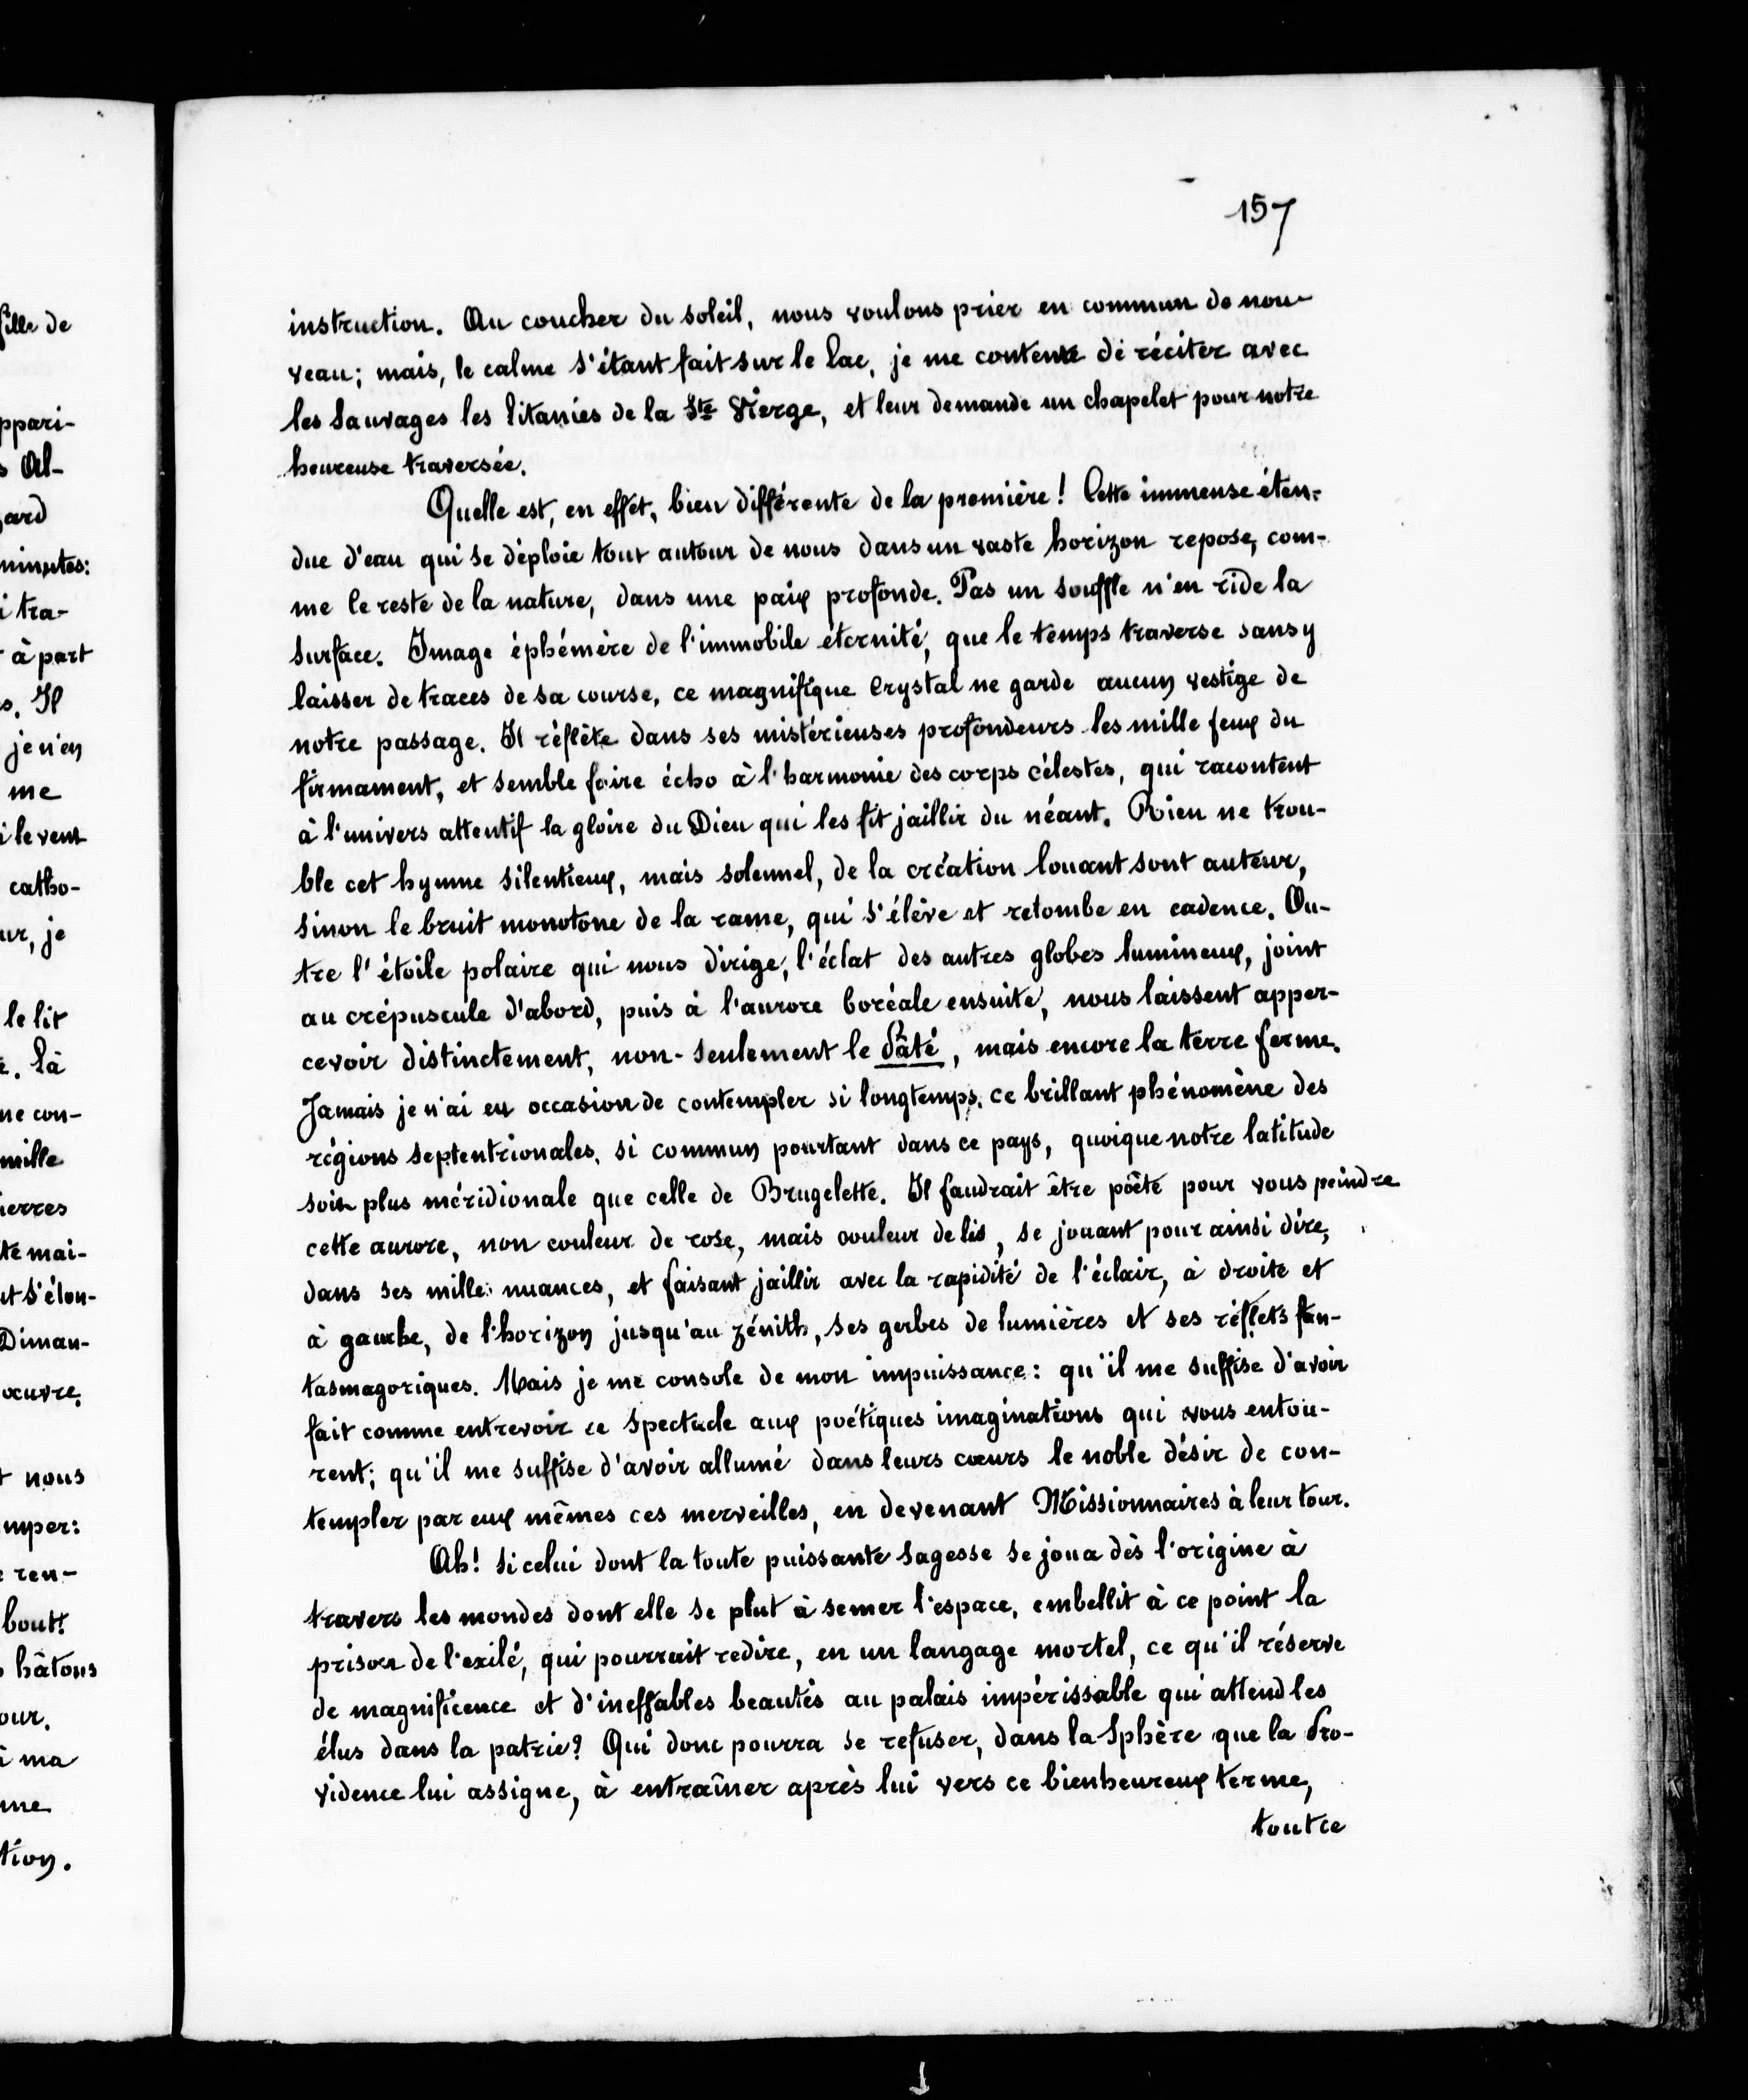 157
instruction. Au coucher du soleil, nous voulons prier en commun de nou-
veau; mais, le calme s'étant fait sur le Lac, je me contente de réciter avec
les Sauvages les litanies de la Ste Vierge, et leur demande un chapelet pour notre
heureuse traversée.
Quelle est, en effet, bien différente de la première! Cette immense éten-
due d'eau qui se déploie tout autour de nous dans un vaste horizon repose, com-
me le reste de la nature, dans une paix profonde. Pas un souffle n'en ride la
surface. Image éphémère de l'immobile éternité, que le temps traverse sans y
laisser de traces de sa course, ce magnifique Crystal ne garde aucun vestige de
notre passage. Il réflète dans ses mistérieuses profondeurs les mille feux du
firmament, et semble faire écho à l'harmonie des corps célestes, qui racontent
à l'univers attentif la gloire du Dieu qui les fit jaillir du néant. Rien ne trou-
ble cet hymne silentieux, mais solennel, de la création louant sont auteur,
sinon le bruit monotone de la rame, qui s'élève et retombe en cadence. Ou-
tre l'étoile polaire qui nous dirige, l'éclat des autres globes lumineux, joint
au crépuscule d'abord, puis à l'aurore boréale ensuite, nous laissent apper-
cevoir distinctement, non-seulement le Pâté, mais encore la terre ferme.
Jamais je n'ai eu occasion de contempler si longtemps, ce brillant phénomène des
régions septentrionales, si commun pourtant dans ce pays, quoique notre latitude
soit plus méridionale que celle de Brugelette. Il faudrait être poëte pour vous peindre
cette aurore, non couleur de rose, mais couleur de lis, se jouant pour ainsi dire,
dans ses mille nuances, et faisant jaillir avec la rapidité de l'éclair, à droite et
à gauche, de l'horizon jusqu'au zénith, ses gerbes de lumières et ses réflets fan-
tasmagoriques. Mais je me console de mon impuissance: qu'il me suffise d'avoir
fait comme entrevoir ce Spectacle aux poétiques imaginations qui vous entou-
rent; qu'il me suffise d'avoir allumé dans leurs cœurs le noble désir de con-
templer par eux mêmes ces merveilles, en devenant Missionnaires à leur tour.
Ah! si celui dont la toute puissante Sagesse se joua dès l'origine à
travers les mondes dont elle se plut à semer l'espace, embellit à ce point la
prison de l'exilé, qui pourrait redire, en un langage mortel, ce qu'il réserve
de magnificence et d'ineffables beautés au palais impérissable qui attend les
élus dans la patrie? Qui donc pourra se refuser, dans la Sphère que la Pro-
vidence lui assigne, à entraîner après lui vers ce bienheureux terme,
tout ce